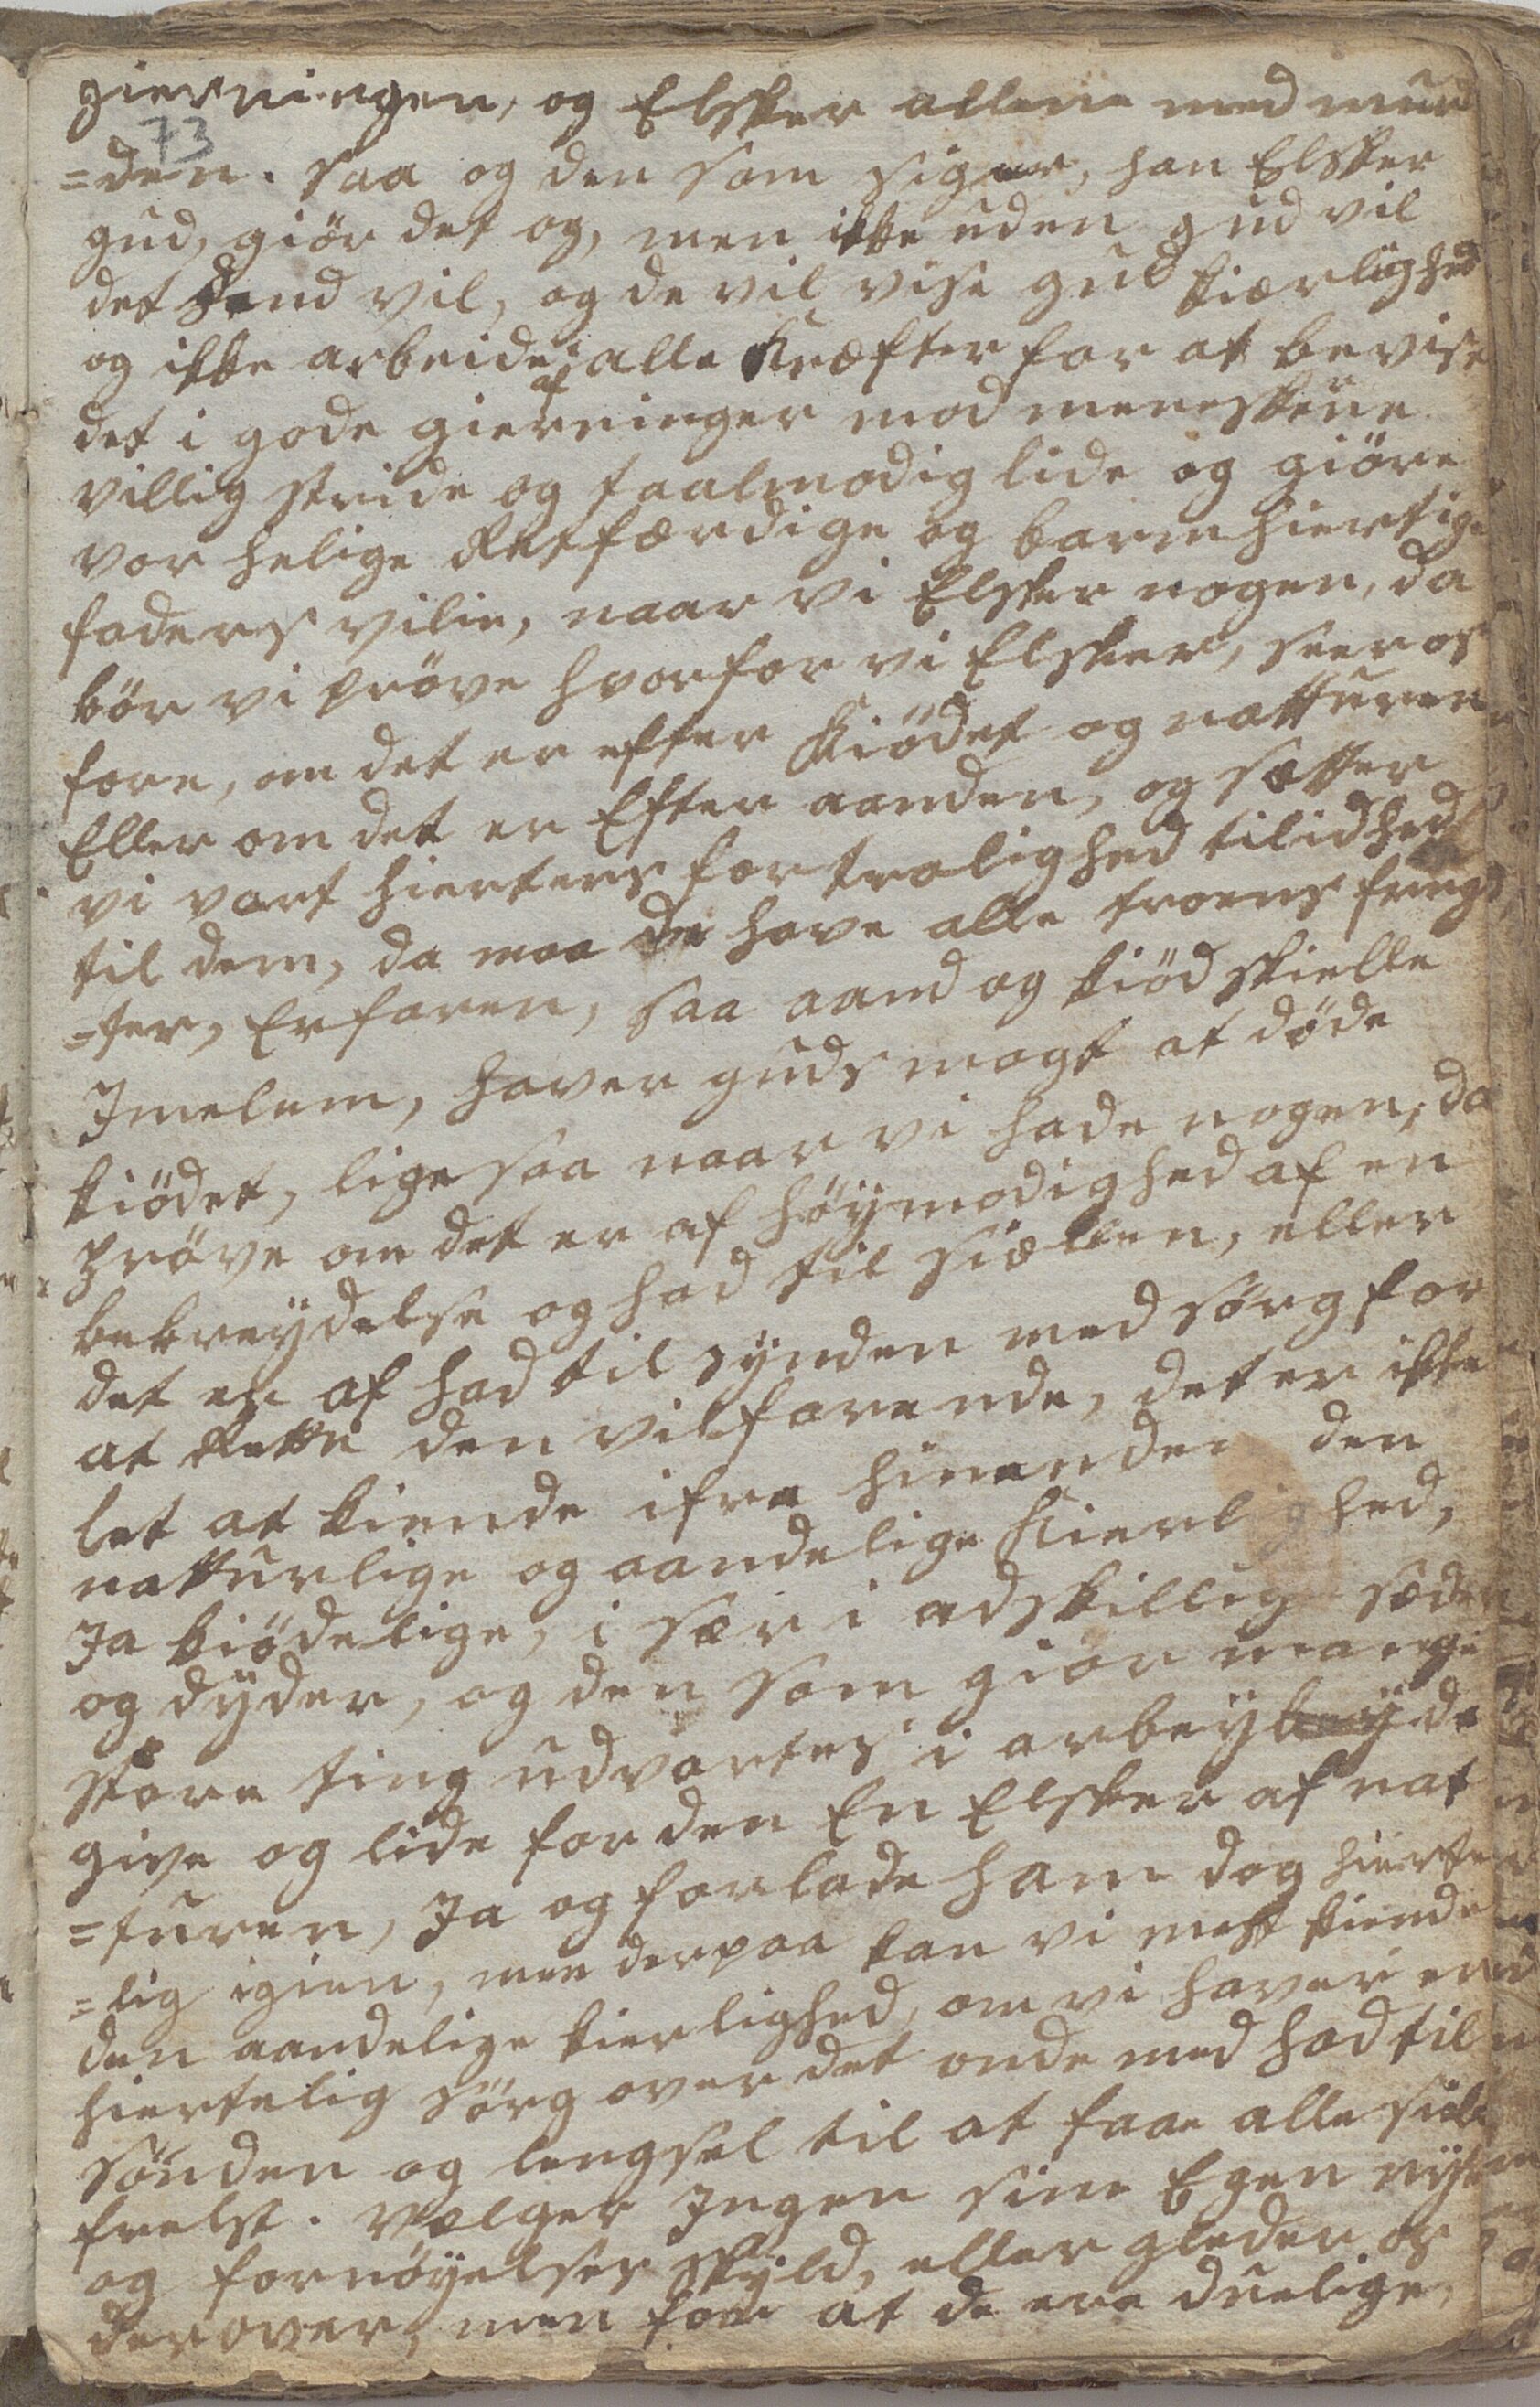 gierningen, og Elsker allene med mun
73
=den. saa og den som siger, han Elsker
gud, giör det og, men ikke uden gud vil
det hand vil, og de vil vise gud kiærlighed
og ikke arbeide af alle Kræfter for at bevise
det i gode gierninger mod meneskene
villig stride og taalmodig lide og giöre
vor helige Retfærdige og barmhiertige
faders vilie, naar vi Elsker nogen, da
bör vi pröve hvorfor vi Elsker, seer os
fore, om det er efter Kiödet og natturen
Eller om det er Efter aanden, og sætter
vi vort hiertens fortrolighed tilidhed
til dem, da maa de have alle troens frug
=ter, Erfaren, saa aand og kiöd skielle
Imelem, haver guds magt at döde
kiödet, lige saa naar vi hade nogen, da
pröve om det er af höymodighed af en
bebreydelse og had til siællen, eller
det er af had til synden med sorg for
at Rette den vilfarende, det er ikke
let at kiende ifra hinanden den
natturlige og aandelige Kierlighed,
Ja kiödelige, i sær i adskillig sæder
og dyder, og den som giör mange
store ting udvortes i arbeyde
give og lide for den En Elsker af nat
=turen, Ja og forlade ham dog hierte
=lig igien, men derpaa kan vi mest kiende
den aandelige kierlighed, om vi haver end
hiertelig sörg over det onde med had til
sönden og lengsel til at faae alle siæle
frelst. Vælger Ingen sine Egen nytte
og fornöyelses skyld, eller gleder os
derover, men for at de ere duelige,